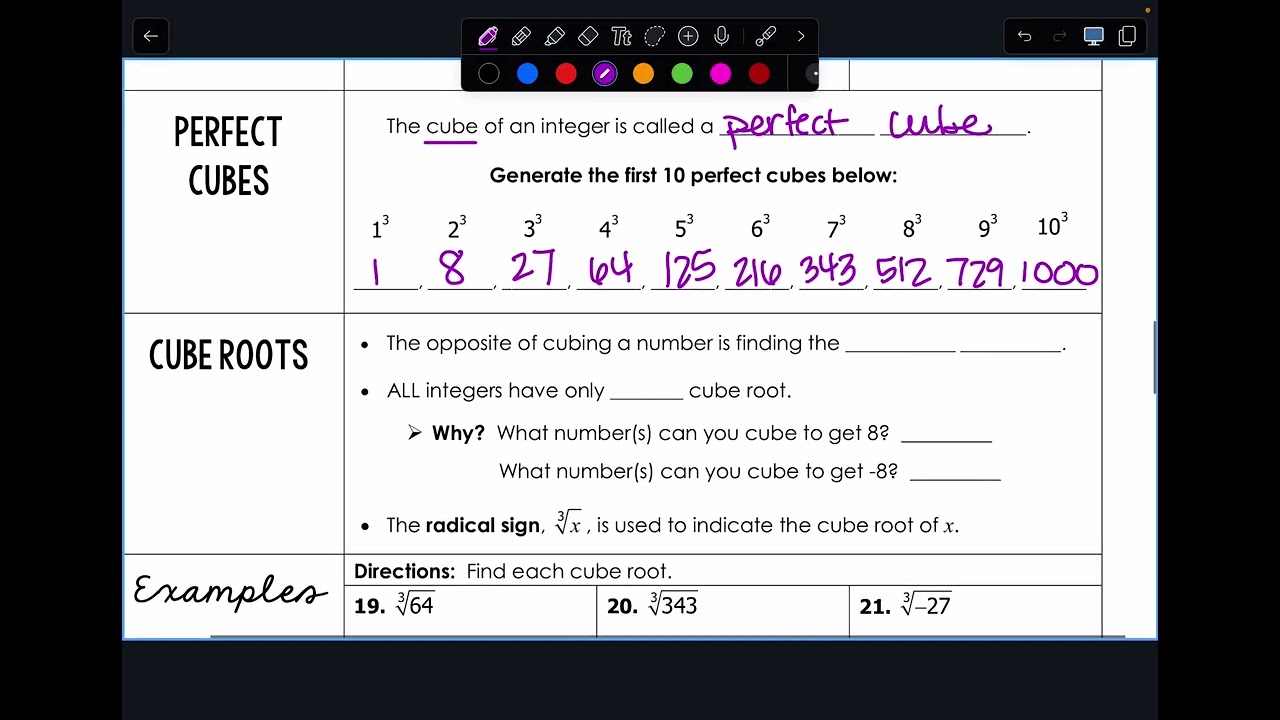 Tt
PERFECT
CUBES
The cube of an integer is called a perfect cube.
Generate the first 10 perfect cubes below:
1³ 2³ 3³ 4³ 5³ 6³ 7³ 8³ 9³ 10³
1, 8, 27, 64, 125, 216, 343, 512, 729, 1000
CUBE ROOTS
• The opposite of cubing a number is finding the __________ __________.
• ALL integers have only _______ cube root.
➢ Why? What number(s) can you cube to get 8? _________
What number(s) can you cube to get -8? _________
• The radical sign, ∛x, is used to indicate the cube root of x.
Examples
Directions: Find each cube root.
19. ∛64 20. ∛343 21. ∛–27